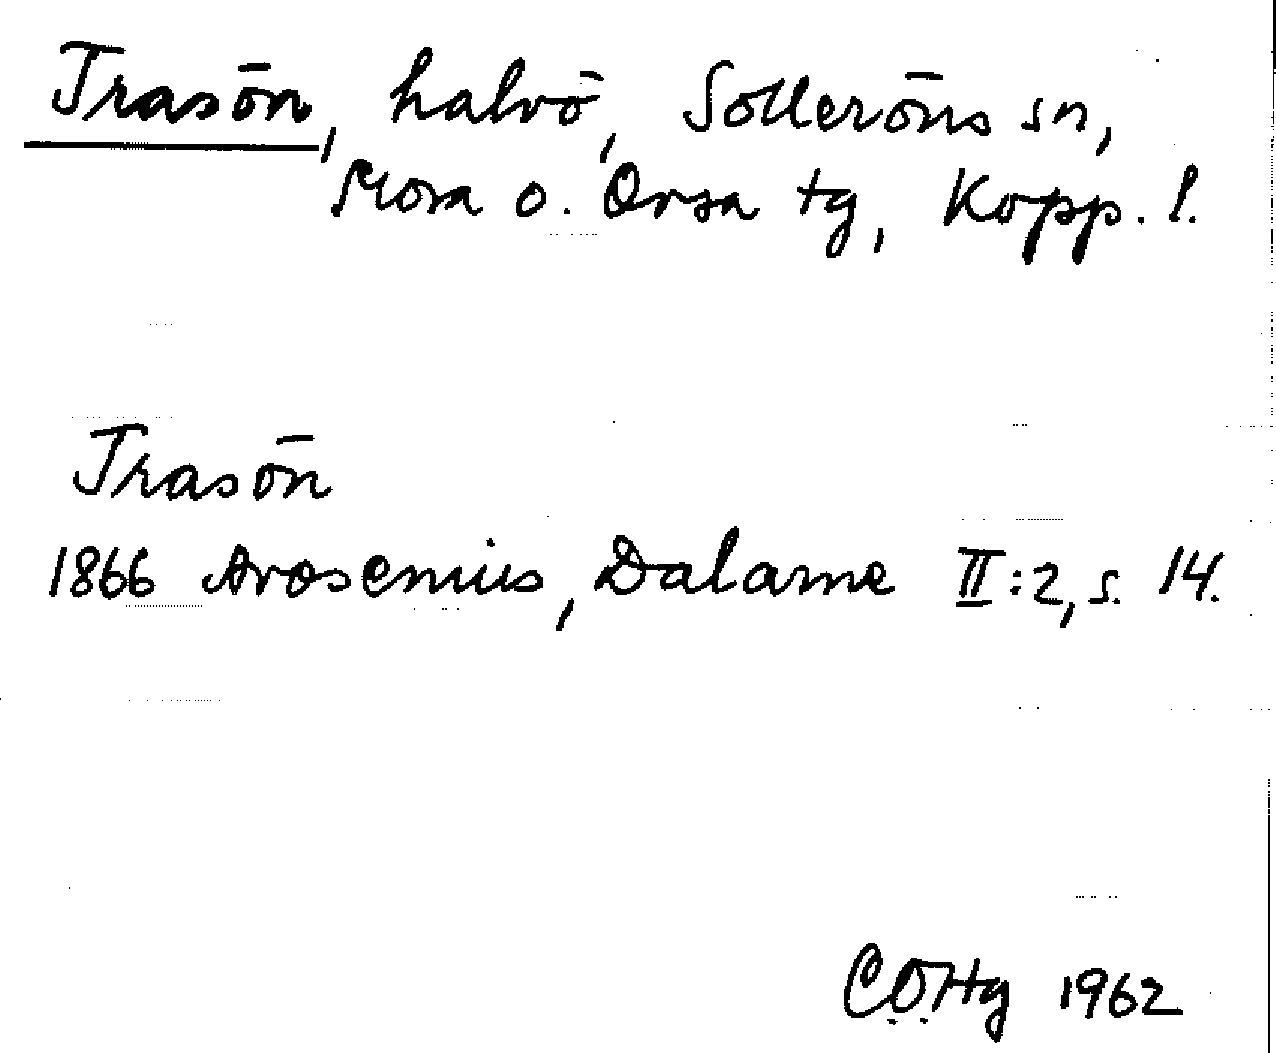 Trasön, halvö, Solleröns sn,
Mora o. Orsa tg, Kopp. l.
Trasön
1866 Arosenius, Dalarne II:2, s. 14.
COHg 1962